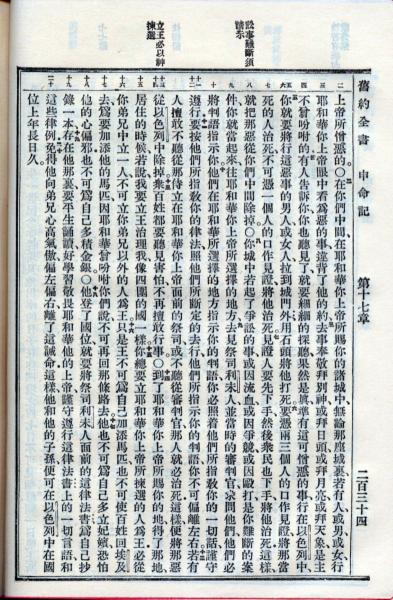 舊約全書　申命記　第十七章　二百三十四
訟事難斷須
請示
立王必以神
揀選
上帝所憎惡的○在你們中間在耶和華你上帝所賜你的諸城中無論那座城裏若有人或男或女行
耶和華你上帝眼中看爲惡的事違背了他的約去事奉敬拜別神或拜日頭或拜月亮或拜天象是主
不曾吩咐的有人告訴你你也聽見了就要細細的探聽果然是眞準有這可憎惡的事行在以色列中
你就要將行這惡事的男人或女人拉到城門外用石頭將他打死要憑兩三個人的口作見證將那當
死的人治死不可憑一個人的口作見證將他治死見證人要先下手然後衆民也下手將他治死這樣
就把那惡從你們中間除掉○你城中若起了爭訟的事或因流血或因爭競或因毆打是你難斷的案
件你就當起來往耶和華你上帝所選擇的地方去見祭司利未人並當時的審判官求問他們他們必
將判語指示你他們在耶和華所選擇的地方指示你的判語你必照着他們所指敎你的一切話謹守
遵行要按他們所指敎你的律法照他們所斷定的去行他們所指示你的判語你不可偏離左右若有
人擅敢不聽從那侍立在耶和華你上帝面前的祭司或不聽從審判官那人就必治死這樣便將那惡
從以色列中除掉衆百姓都要聽見害怕不再擅敢行事○到了耶和華你上帝所賜你的地得了那地
居住的時候若說我要立王治理我像四圍的國一樣你總要立耶和華你上帝所揀選的人爲王必從
你弟兄中立一人不可立你弟兄以外的人爲王只是王不可爲自己加添馬匹也不可使百姓回埃及
去爲要加添他的馬匹因耶和華曾吩咐你們說不可再回那條路去他也不可爲自己多立妃嬪恐怕
他的心偏邪也不可爲自己多積金銀○他登了國位就要將祭司利未人面前的這律法書爲自己抄
錄一本存在他那裏要平生誦讀好學習敬畏耶和華他的上帝謹守遵行這律法書上的一切言語和
這些律例免得他向弟兄心高氣傲偏左偏右離了這誡命這樣他和他的子孫便可在以色列中在國
位上年長日久